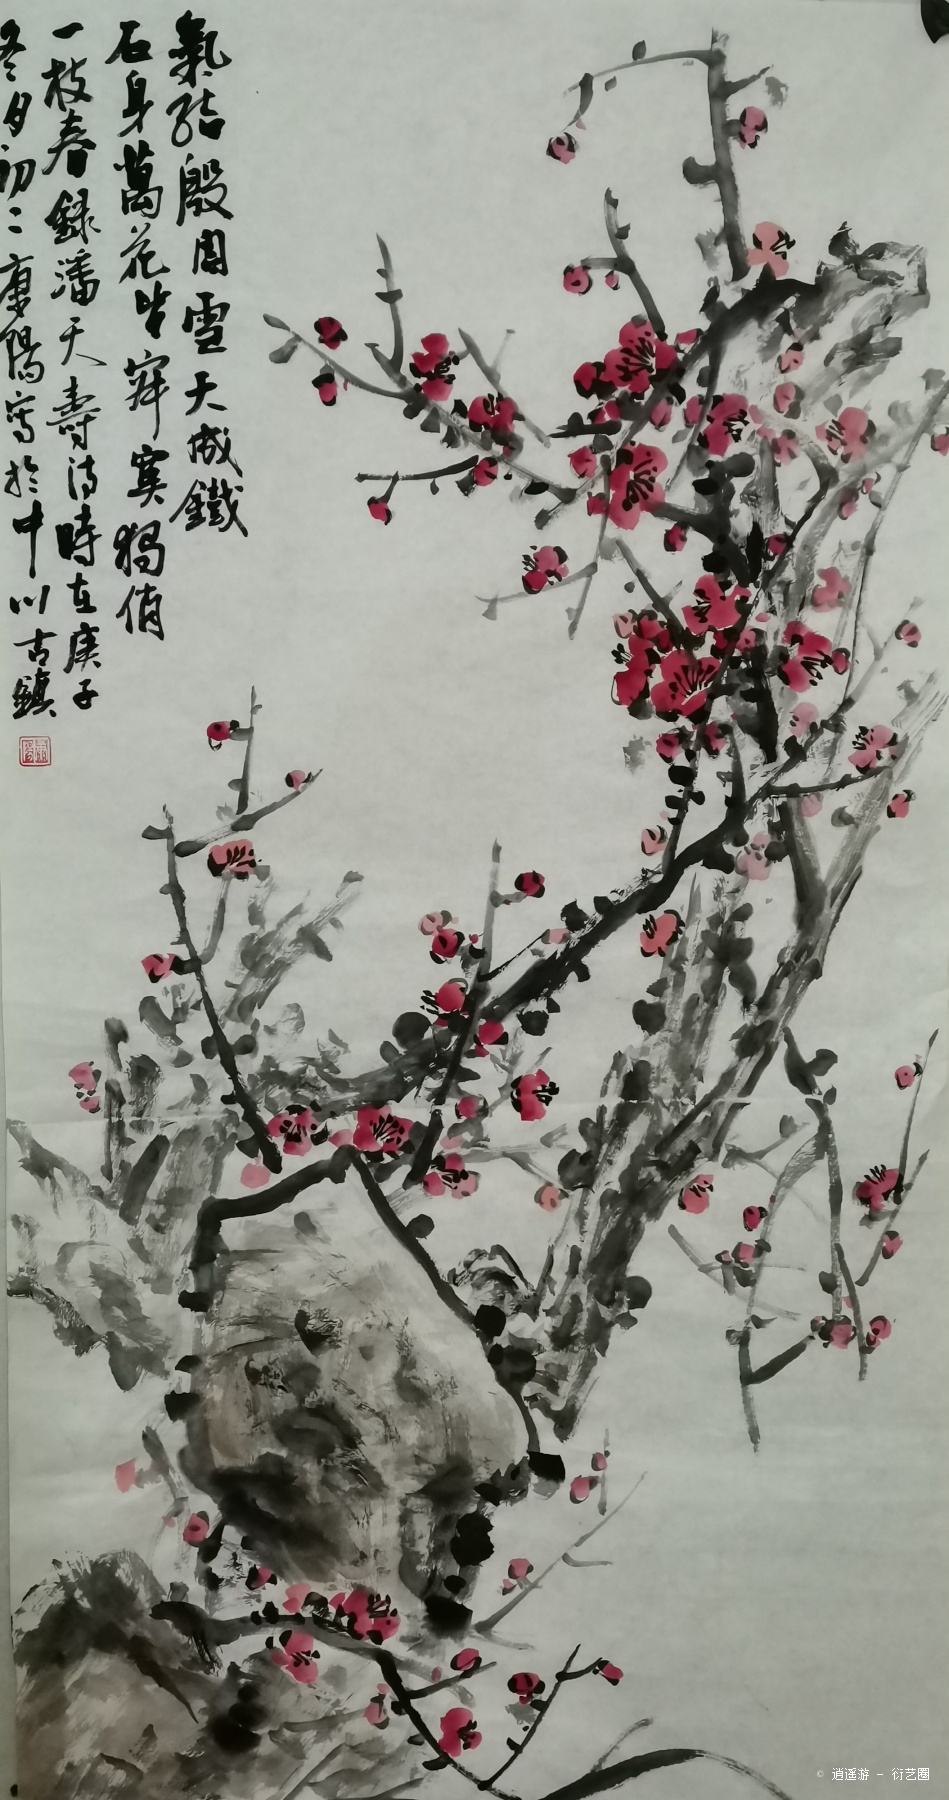 氣結殷周雪天成鐵
石身萬花皆寂寞獨俏
一枝春錄潘天壽詩時在庚子
冬月初二康陽寫於中川古鎮
© 逍遥游 - 衍艺圈